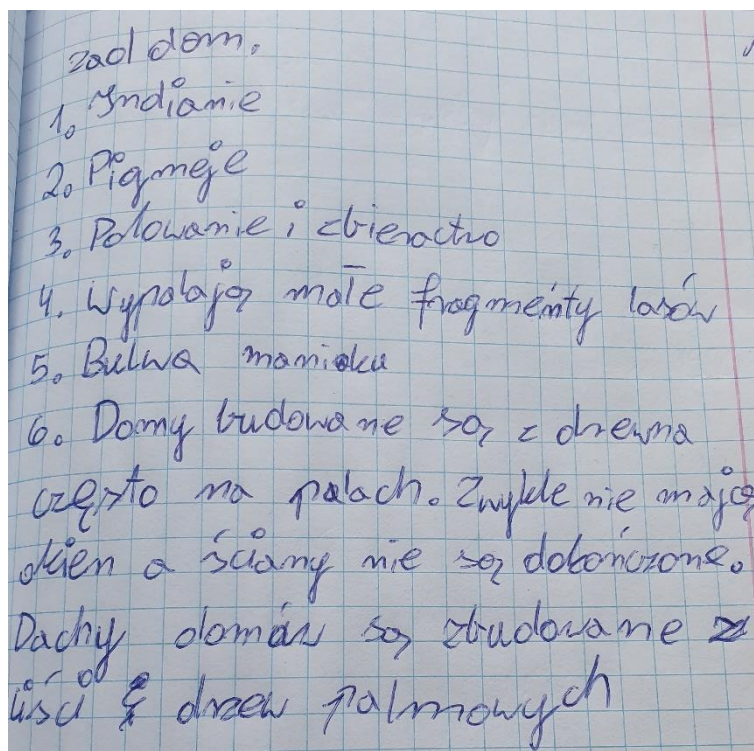 zad dom.
1. Indianie
2. Pigmeje
3. Polowanie i zbieractwo
4. Wypalają małe fragmenty lasów
5. Bulwa manioku
6. Domy budowane są z drewna
często na palach. Zwykle nie mają
okien a ściany nie są dokończone.
Dachy domów są zbudowane z
liści z drzew palmowych